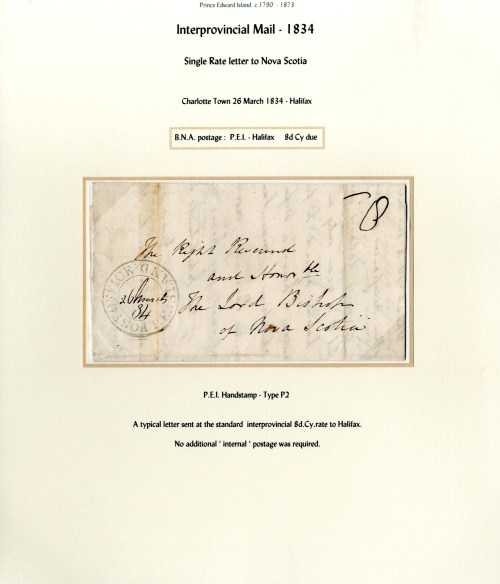 Prince Edward Island c.1790 - 1873
Interprovincial Mail - 1834
Single Rate letter to Nova Scotia
Charlotte Town 26 March 1834 - Halifax
B.N.A. postage : P.E.I. - Halifax 8d Cy due
8
The Right Reverend
and Honor ble
The Lord Bishop
of Nova Scotia
26 March
34
P.E.I. Handstamp - Type P2
A typical letter sent at the standard interprovincial 8d.Cy.rate to Halifax.
No additional ' internal ' postage was required.